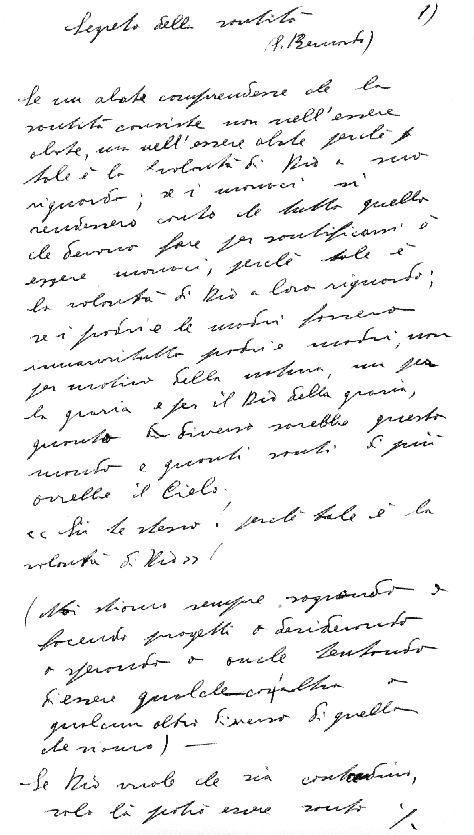 Segreto della santità
1)
(S. Bernardo)
Se un abate comprendesse che la
santità consiste non nell'essere
abate, ma nell'essere abate perchè
tale è la volontà di Dio a suo
riguardo; se i monaci si
rendessero conto che tutto quello
che devono fare per santificarsi è
essere monaci, perchè tale è
la volontà di Dio a loro riguardo;
se i padri e le madri fossero
innanzitutto padri e madri, non
per motivo della natura, ma per
la grazia e per il Dio della grazia,
quanto diverso sarebbe questo
mondo e quanti santi di più
avrebbe il Cielo.
<< Sii te stesso! perchè tale è la
volontà di Dio >>!
(Noi stiamo sempre sognando o
facendo progetti o desiderando
o sperando o anche tentando
di essere qualche cos'altro o
qualcun altro diverso di quello
che siamo) —
- Se Dio vuole che sia contadino,
solo là potrò essere santo ./.